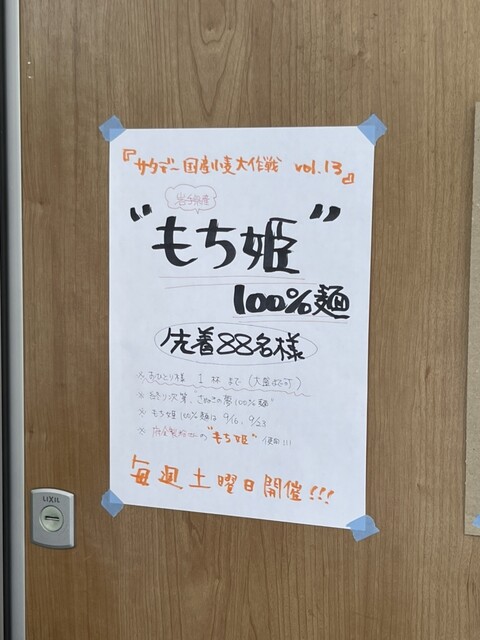 『サタデー国産小麦大作戦 vol.13』
岩手県産
"もち姫"
100%麺
先着88名様
※ おひとり様 1杯まで(大盛お可)
※ 終り次第、さぬきの夢100%麺
※ もち姫100%麺は 9/16、9/23
の"もち姫"使用!!!
毎週土曜日開催!!!
LIXIL